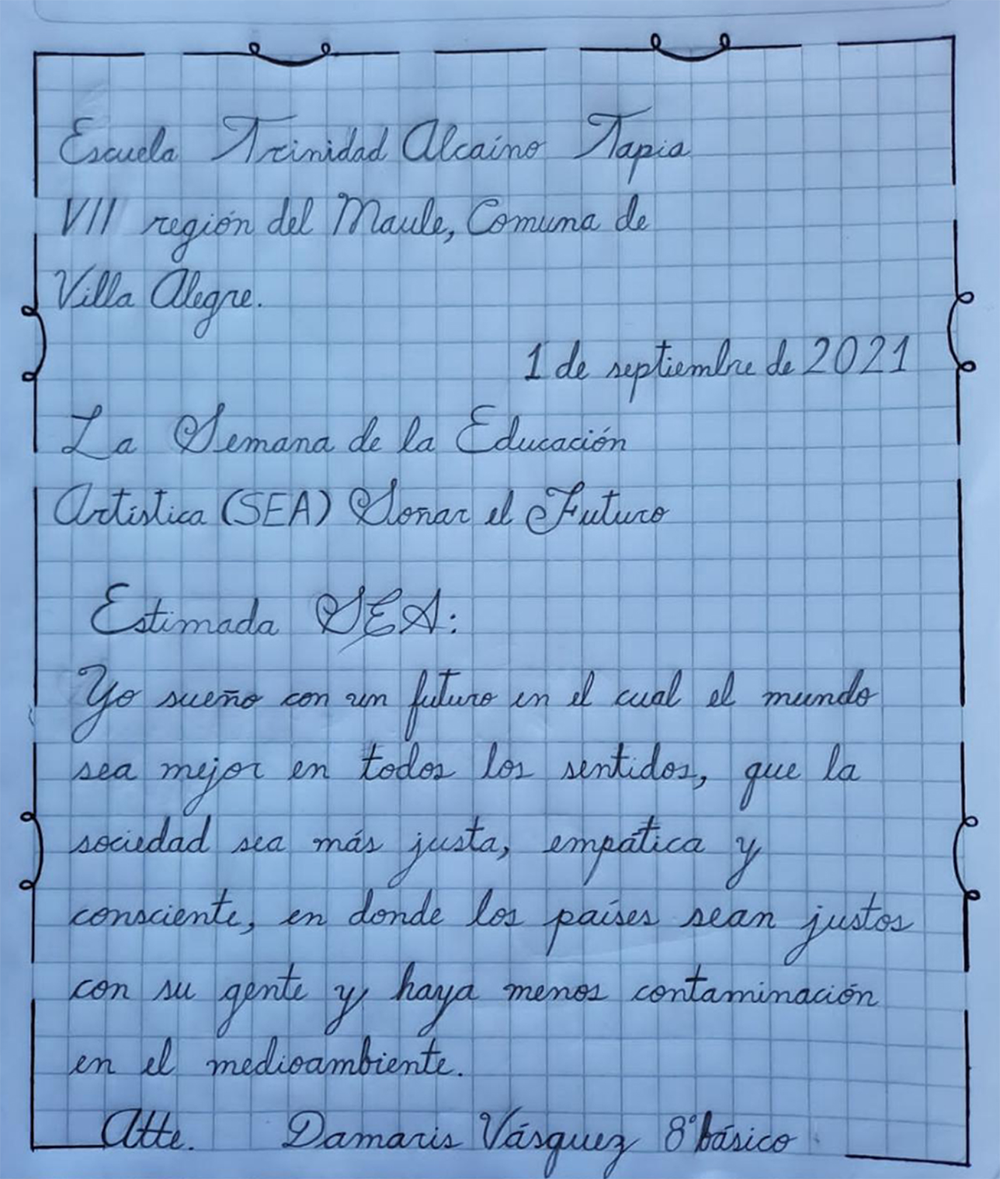 Escuela Trinidad Alcaíno Tapia
VII región del Maule, Comuna de
Villa Alegre.
1 de septiembre de 2021
La Semana de la Educación
Artística (SEA) Soñar el Futuro
Estimada SEA:
Yo sueño con un futuro en el cual el mundo
sea mejor en todos los sentidos, que la
sociedad sea más justa, empática y
consciente, en donde los países sean justos
con su gente y haya menos contaminación
en el medioambiente.
Atte. Damaris Vásquez 8°básico